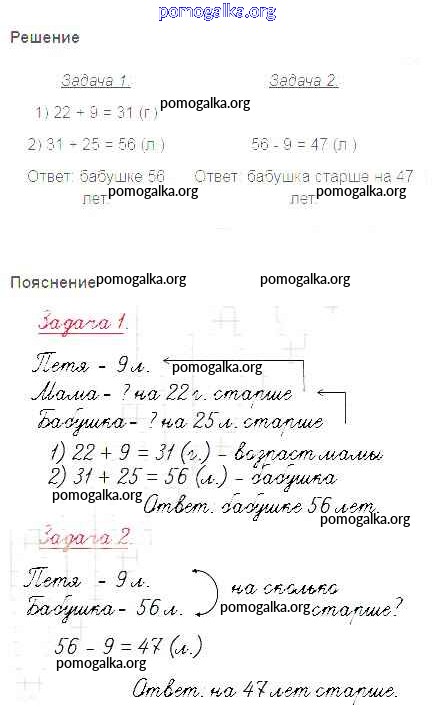 pomogalka.org
Решение
Задача 1. Задача 2.
1) 22 + 9 = 31 (г.) pomogalka.org
2) 31 + 25 = 56 (л.) 56 - 9 = 47 (л.)
Ответ: бабушке 56 Ответ: бабушка старше на 47
pomogalka.org pomogalka.org
лет. лет.
Пояснение pomogalka.org pomogalka.org
Задача 1.
Петя - 9 л.
pomogalka.org
Мама - ? на 22 г. старше
Бабушка - ? на 25 л. старше
1) 22 + 9 = 31 (г.) - возраст мамы
2) 31 + 25 = 56 (л.) - бабушка
pomogalka.org
Ответ. бабушке 56 лет.
pomogalka.org
Задача 2.
Петя - 9 л.
на сколько
Бабушка - 56 л. pomogalka.org старше?
56 - 9 = 47 (л.)
pomogalka.org
Ответ. на 47 лет старше.